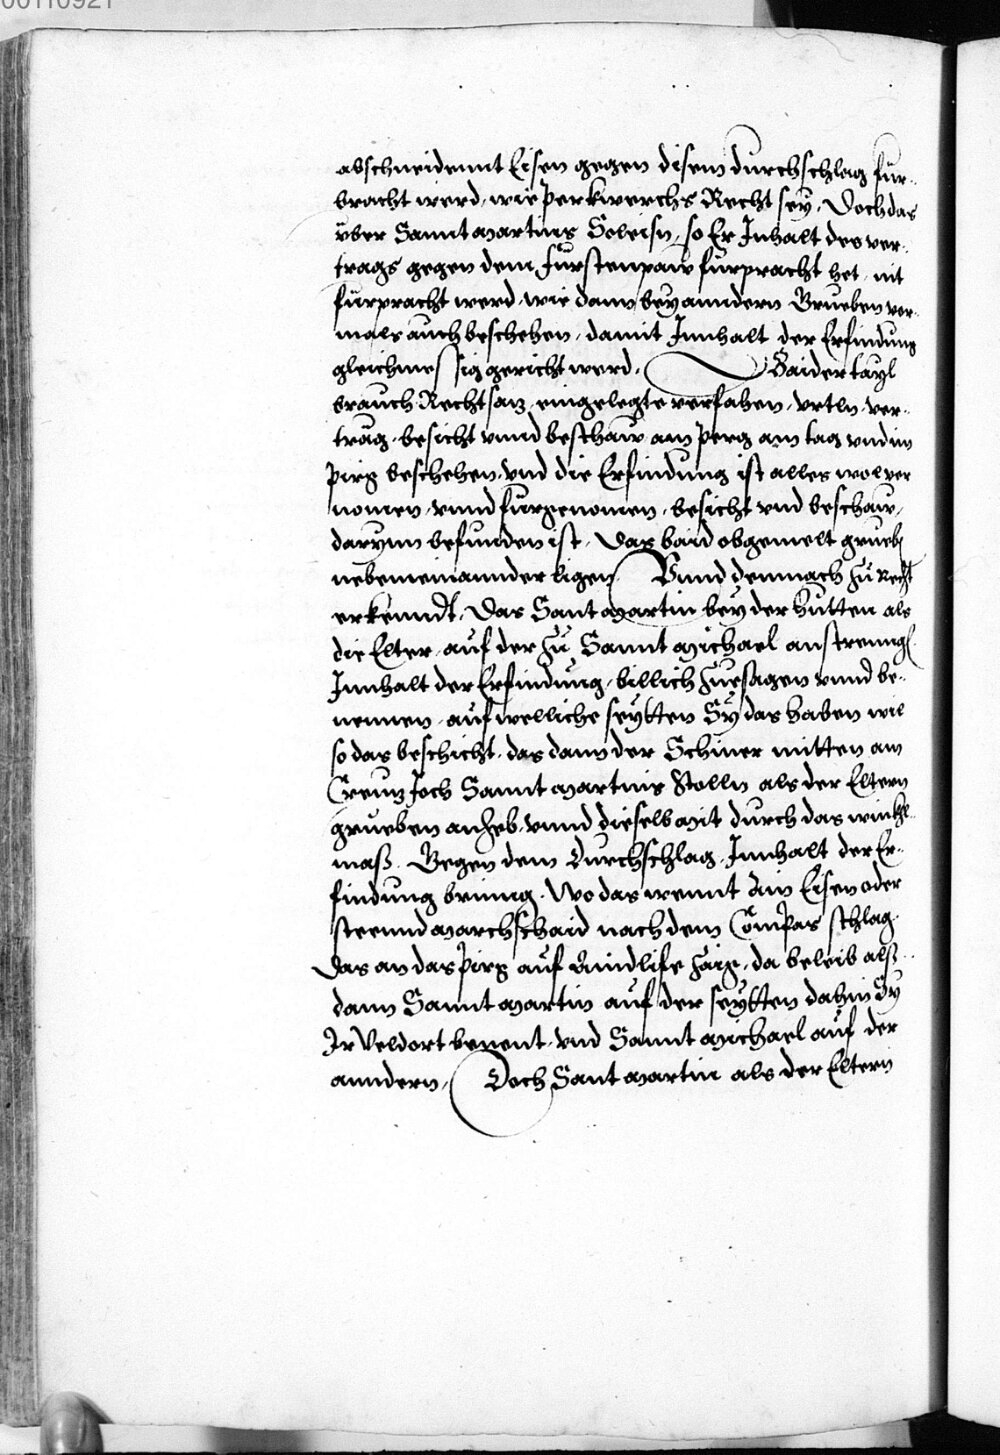 00110921
abschneidennt Eisen gegen disem durchschlag für-
bracht werd, wie perkhwerchs Recht sey, Doch das
vber Sannt Martins Soleisn, so Er Inhalt des ver-
trags gegen dem fürstenpaw fürpracht het, nit
fürpracht werd, wie dann bey anndern Grueben vor-
mals auch beschehen, damit Innhalt der Erfindung
gleichmessig gericht werd. Baider tayl
brauch Rechtsaz, eingelegte verfahen, vrtln, ver-
träg, besicht vnnd beschaw am perg am tag vnd im
pirg beschehen, vnd die Erfindung ist alles wol ver
nomen, vnnd fürgenomen, besicht vnd beschaw,
darynn befunden ist, Das baid obgemelt grueb
neben einannder ligen Vnnd demnach zu Recht
erkenndt, Das Sant Martin bey der Hütten als
die Elter, auf der zu Sannt Michael anstrenng
Innhalt der Erfindung, billich zuesagen vnnd be-
nennen, auf welliche seytten Sy das haben wil
so das beschicht, das dann der Schiner mitten am
Creuz Joch Sannt Martins Stolln als der Eltern
grueben anheb, vnnd dieselb Mit durch das winkhl
maß. Gegen dem Durchschlag, Innhalt der Er-
findung bring. Wo das wennt Ain Eisen oder
steennd Marchschaid nach dem Compas schlag.
Das an das pirg auf Aindlife zaig, da beleib als
dann Sannt Martin auf der seytten dahin Sy
Ir Veldort benent, vnd Sannt Michael auf der
anndern, Doch Sant Martin als der Eltern